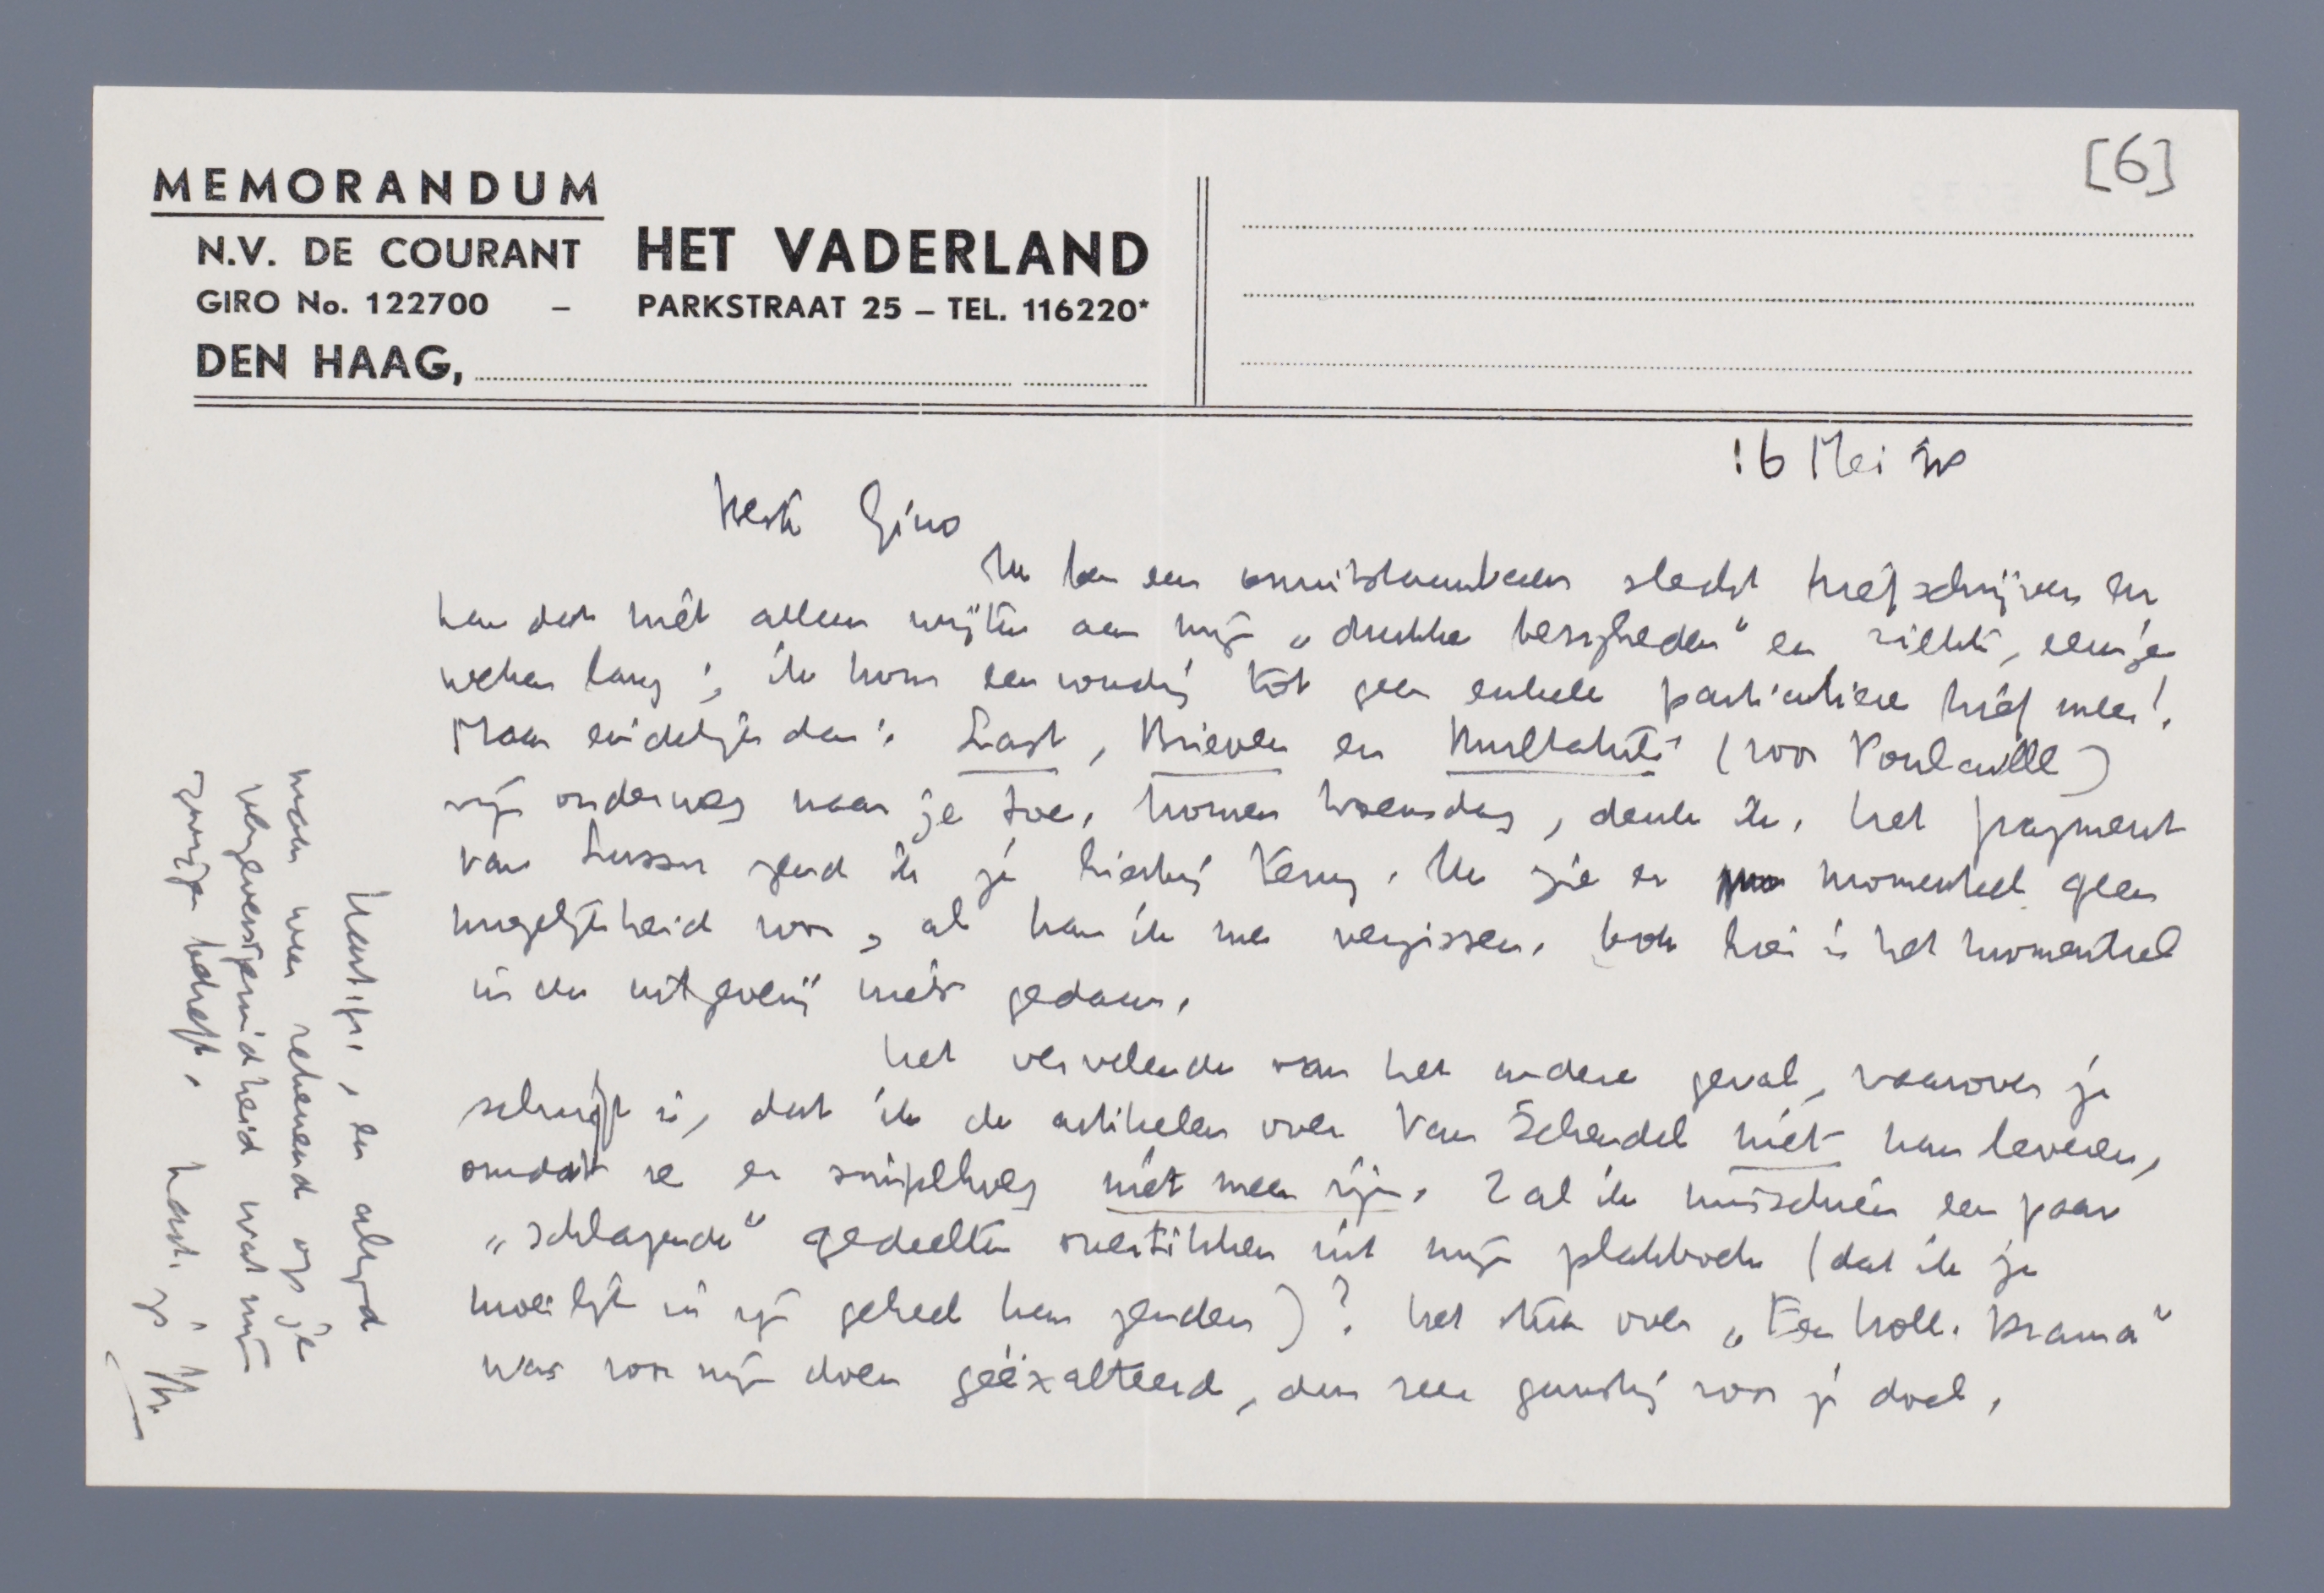 [6]
MEMORANDUM
N.V. DE COURANT HET VADERLAND
GIRO No. 122700 – PARKSTRAAT 25 – TEL. 116220*
DEN HAAG,
16 Mei
Beste Gino
Ik ben een onuitstaanbaar slecht briefschrijver en
kan dat niet alleen wijten aan mijn „drukke bezigheden" en ziekte, eenige
weken lang; ik kom eenvoudig tot geen enkele particuliere brief meer!
Maar eindelijk dan: Last, Brieven en Multatuli (voor Poulaille)
zijn onderweg naar je toe, komen Woensdag, denk ik. Het fragment
van Lussu zend ik je hierbij terug. Ik zie er momenteel geen
mogelijkheid voor, al kan ik me vergissen. Ook hier is het momenteel
in de uitgeverij niets gedaan.
Het vervelende van het andere geval, waarover je
schrijft is, dat ik de artikelen over Van Schendel niet kan leveren,
omdat ze er simpelweg niet meer zijn. Zal ik misschien een paar
„schlagende" gedeelten overtikken uit mijn plakboek (dat ik je
moeilijk in zijn geheel kan zenden)? Het stuk over „Een Holl. Drama"
was voor mijn doen geëxalteerd, dus zeer gunstig voor je doel.
Hartelijk, en altijd
maar weer rekenend op je
vergevensgezindheid wat mijn
zwijgen betreft. hart. gr.